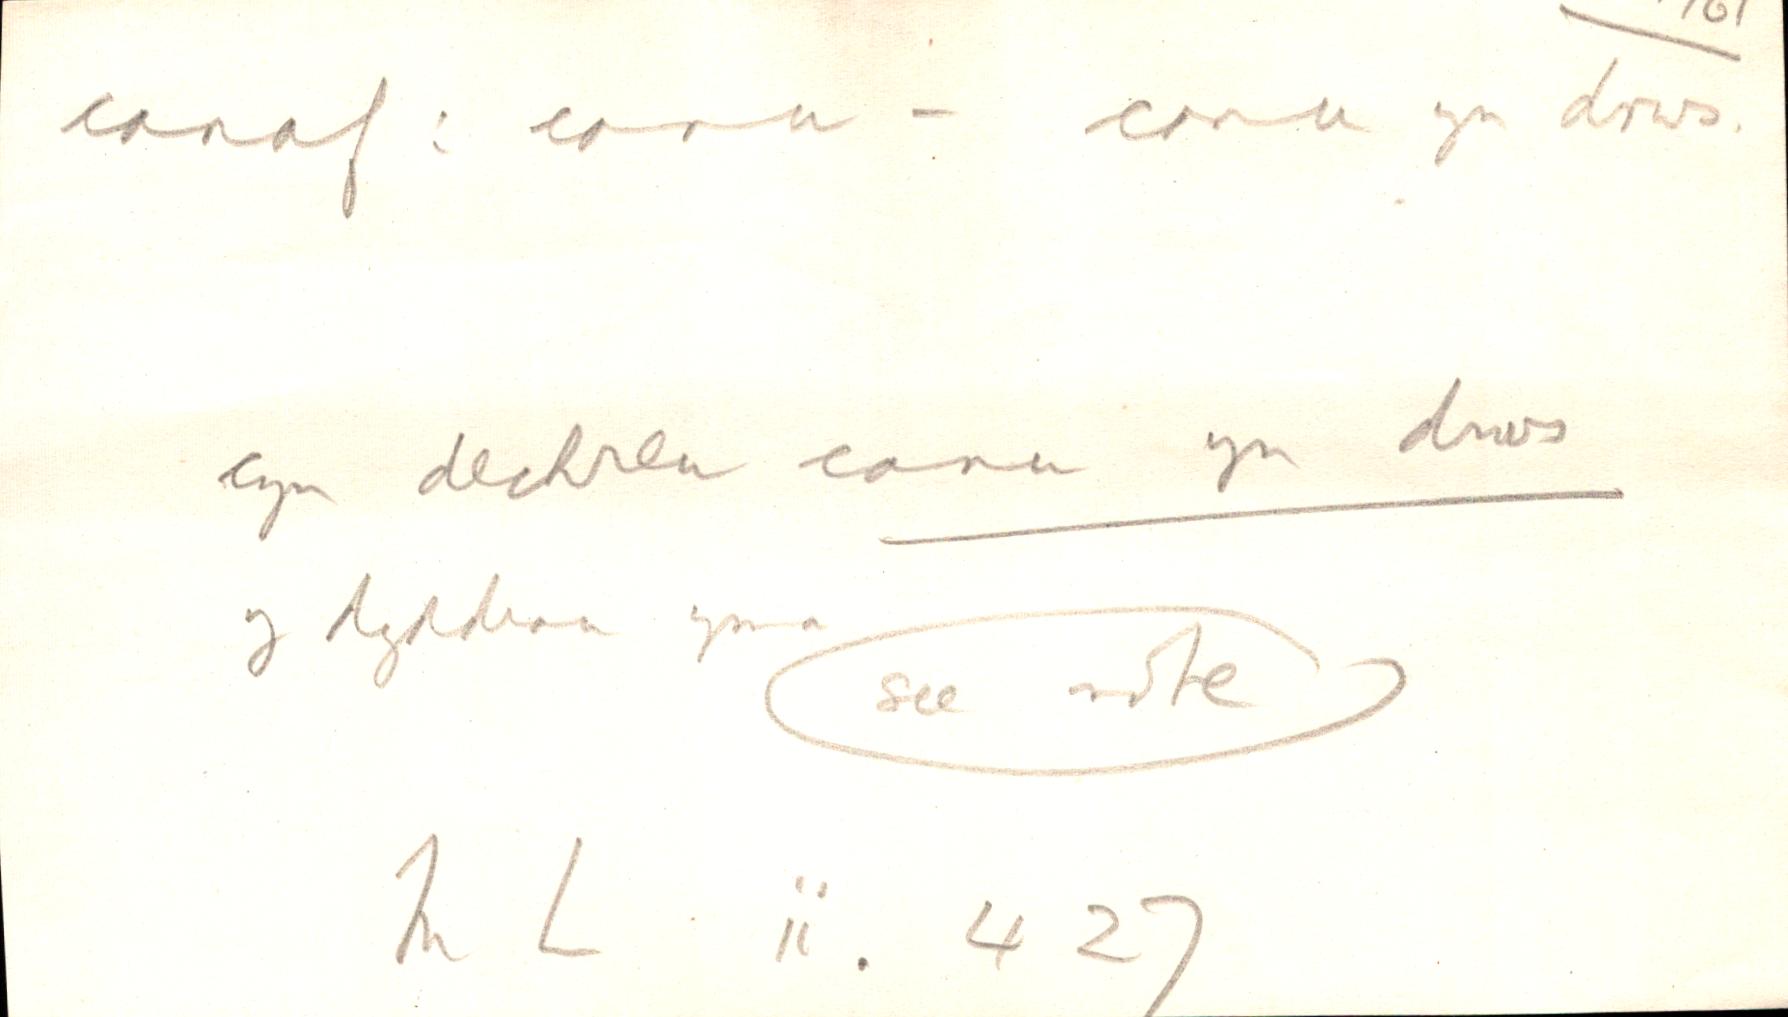 1761
canaf : canu - canu yn drws.
cyn dechreu canu yn drws
y dyddiau yma
see note
ML ii. 427